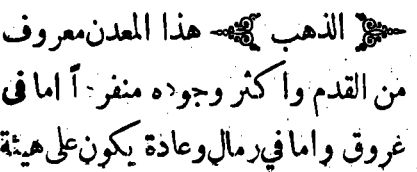 الذهب هذا المعدن معروف
من القدم واكثر وجوده منفرداً اما فى
غروق واما في رمال وعادة يكون على هيئة